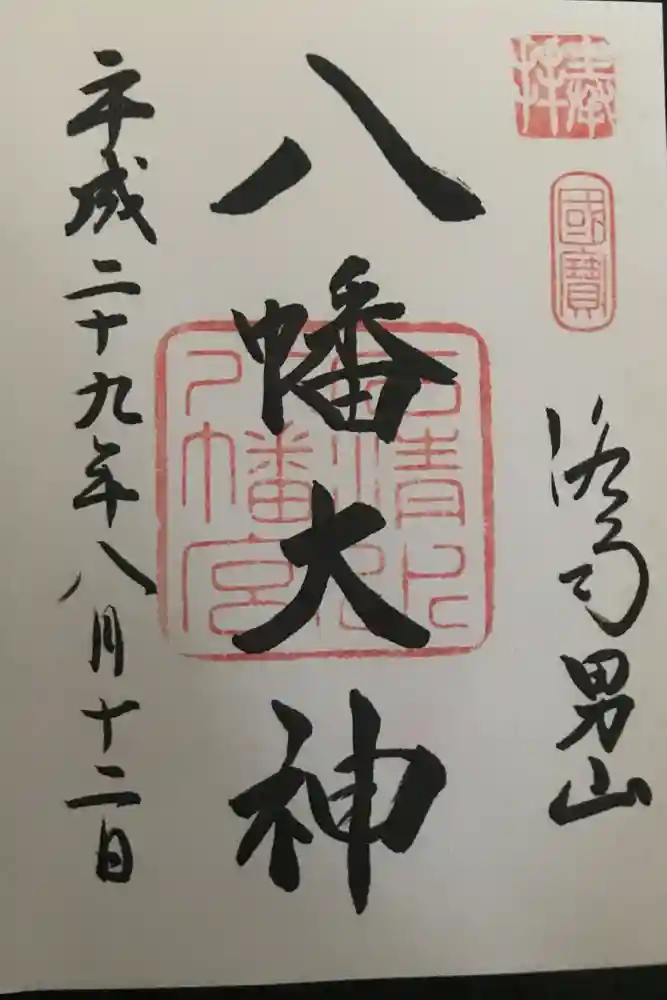 奉拝
國寶
洛南男山
八幡大神
石清水八幡宮
平成二十九年八月十二日